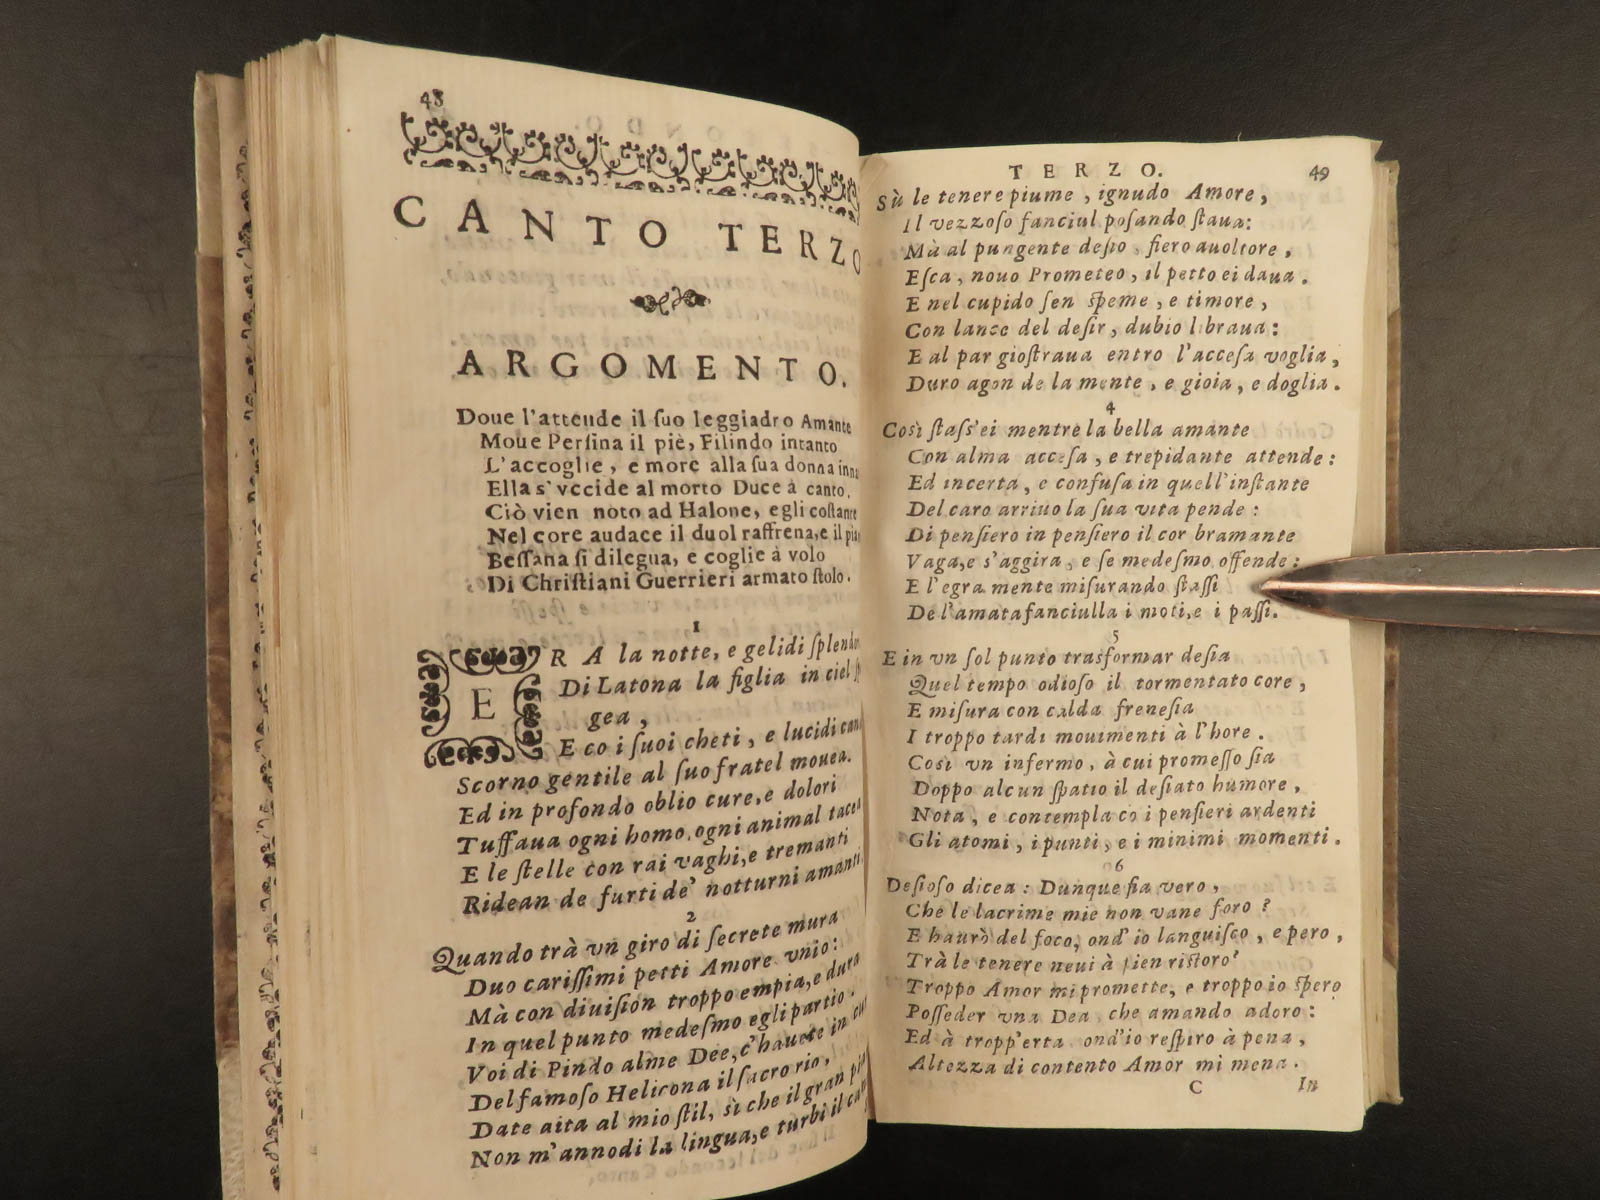 48
CANTO TERZO
ARGOMENTO.
Doue l'attende il ſuo leggiadro Amante
Moue Perſina il piè, Filindo intanto
L'accoglie, e more alla ſua donna
Ella s'vccide al morto Duce à canto.
Ciò vien noto ad Halone, egli coſtante
Nel core audace il duol raffrena, e il
Beſſana ſi dilegua, e coglie à volo
Di Chriſtiani Guerrieri armato ſtolo.
1
ERA la notte, e gelidi
Di Latona la figlia in ciel
gea,
E co i ſuoi cheti, e lucidi
Scorno gentile al ſuo fratel mouea.
Ed in profondo oblio cure, e dolori
Tuffaua ogni homo, ogni animal
E le ſtelle con rai vaghi, e tremanti
Ridean de furti de' notturni amanti.
2
Quando trà vn giro di ſecrete mura
Duo cariſſimi petti Amore vnio:
Mà con diuiſion troppo empia, e dura
In quel punto medeſmo egli partio.
Voi di Pindo alme Dee, c'hauete in
Del famoſo Helicona il ſacro rio,
Date aita al mio ſtil, sì che il gran
Non m'annodi la lingua, e turbi il
TERZO. 49
Sù le tenere piume, ignudo Amore,
Il vezzoſo fanciul poſando ſtaua:
Mà al pungente deſio, fiero auoltore,
Eſca, nouo Prometeo, il petto ei daua.
E nel cupido ſen ſpeme, e timore,
Con lance del deſir, dubio libraua:
E al par gioſtraua entro l'acceſa voglia,
Duro agon de la mente, e gioia, e doglia.
4
Così ſtaſs'ei mentre la bella amante
Con alma acceſa, e trepidante attende:
Ed incerta, e confuſa in quell'inſtante
Del caro arriuo la ſua vita pende:
Di penſiero in penſiero il cor bramante
Vaga, e s'aggira, e ſe medeſmo offende:
E l'egra mente miſurando ſtaſſi
De l'amata fanciulla i moti, e i paſſi.
5
E in vn ſol punto trasformar deſia
Quel tempo odioſo il tormentato core,
E miſura con calda freneſia
I troppo tardi mouimenti à l'hore.
Così vn infermo, à cui promeſſo ſia
Doppo alcun ſpatio il deſiato humore,
Nota, e contempla co i penſieri ardenti
Gli atomi, i punti, e i minimi momenti.
6
Deſioſo dicea: Dunque ſia vero,
Che le lacrime mie non vane foro?
E haurò del foco, ond'io languiſco, e pero,
Trà le tenere neui à pien riſtoro?
Troppo Amor mi promette, e troppo io ſpero
Poſſeder vna Dea, che amando adoro:
Ed à tropp'erta, ond'io reſpiro à pena,
Altezza di contento Amor mi mena.
C In